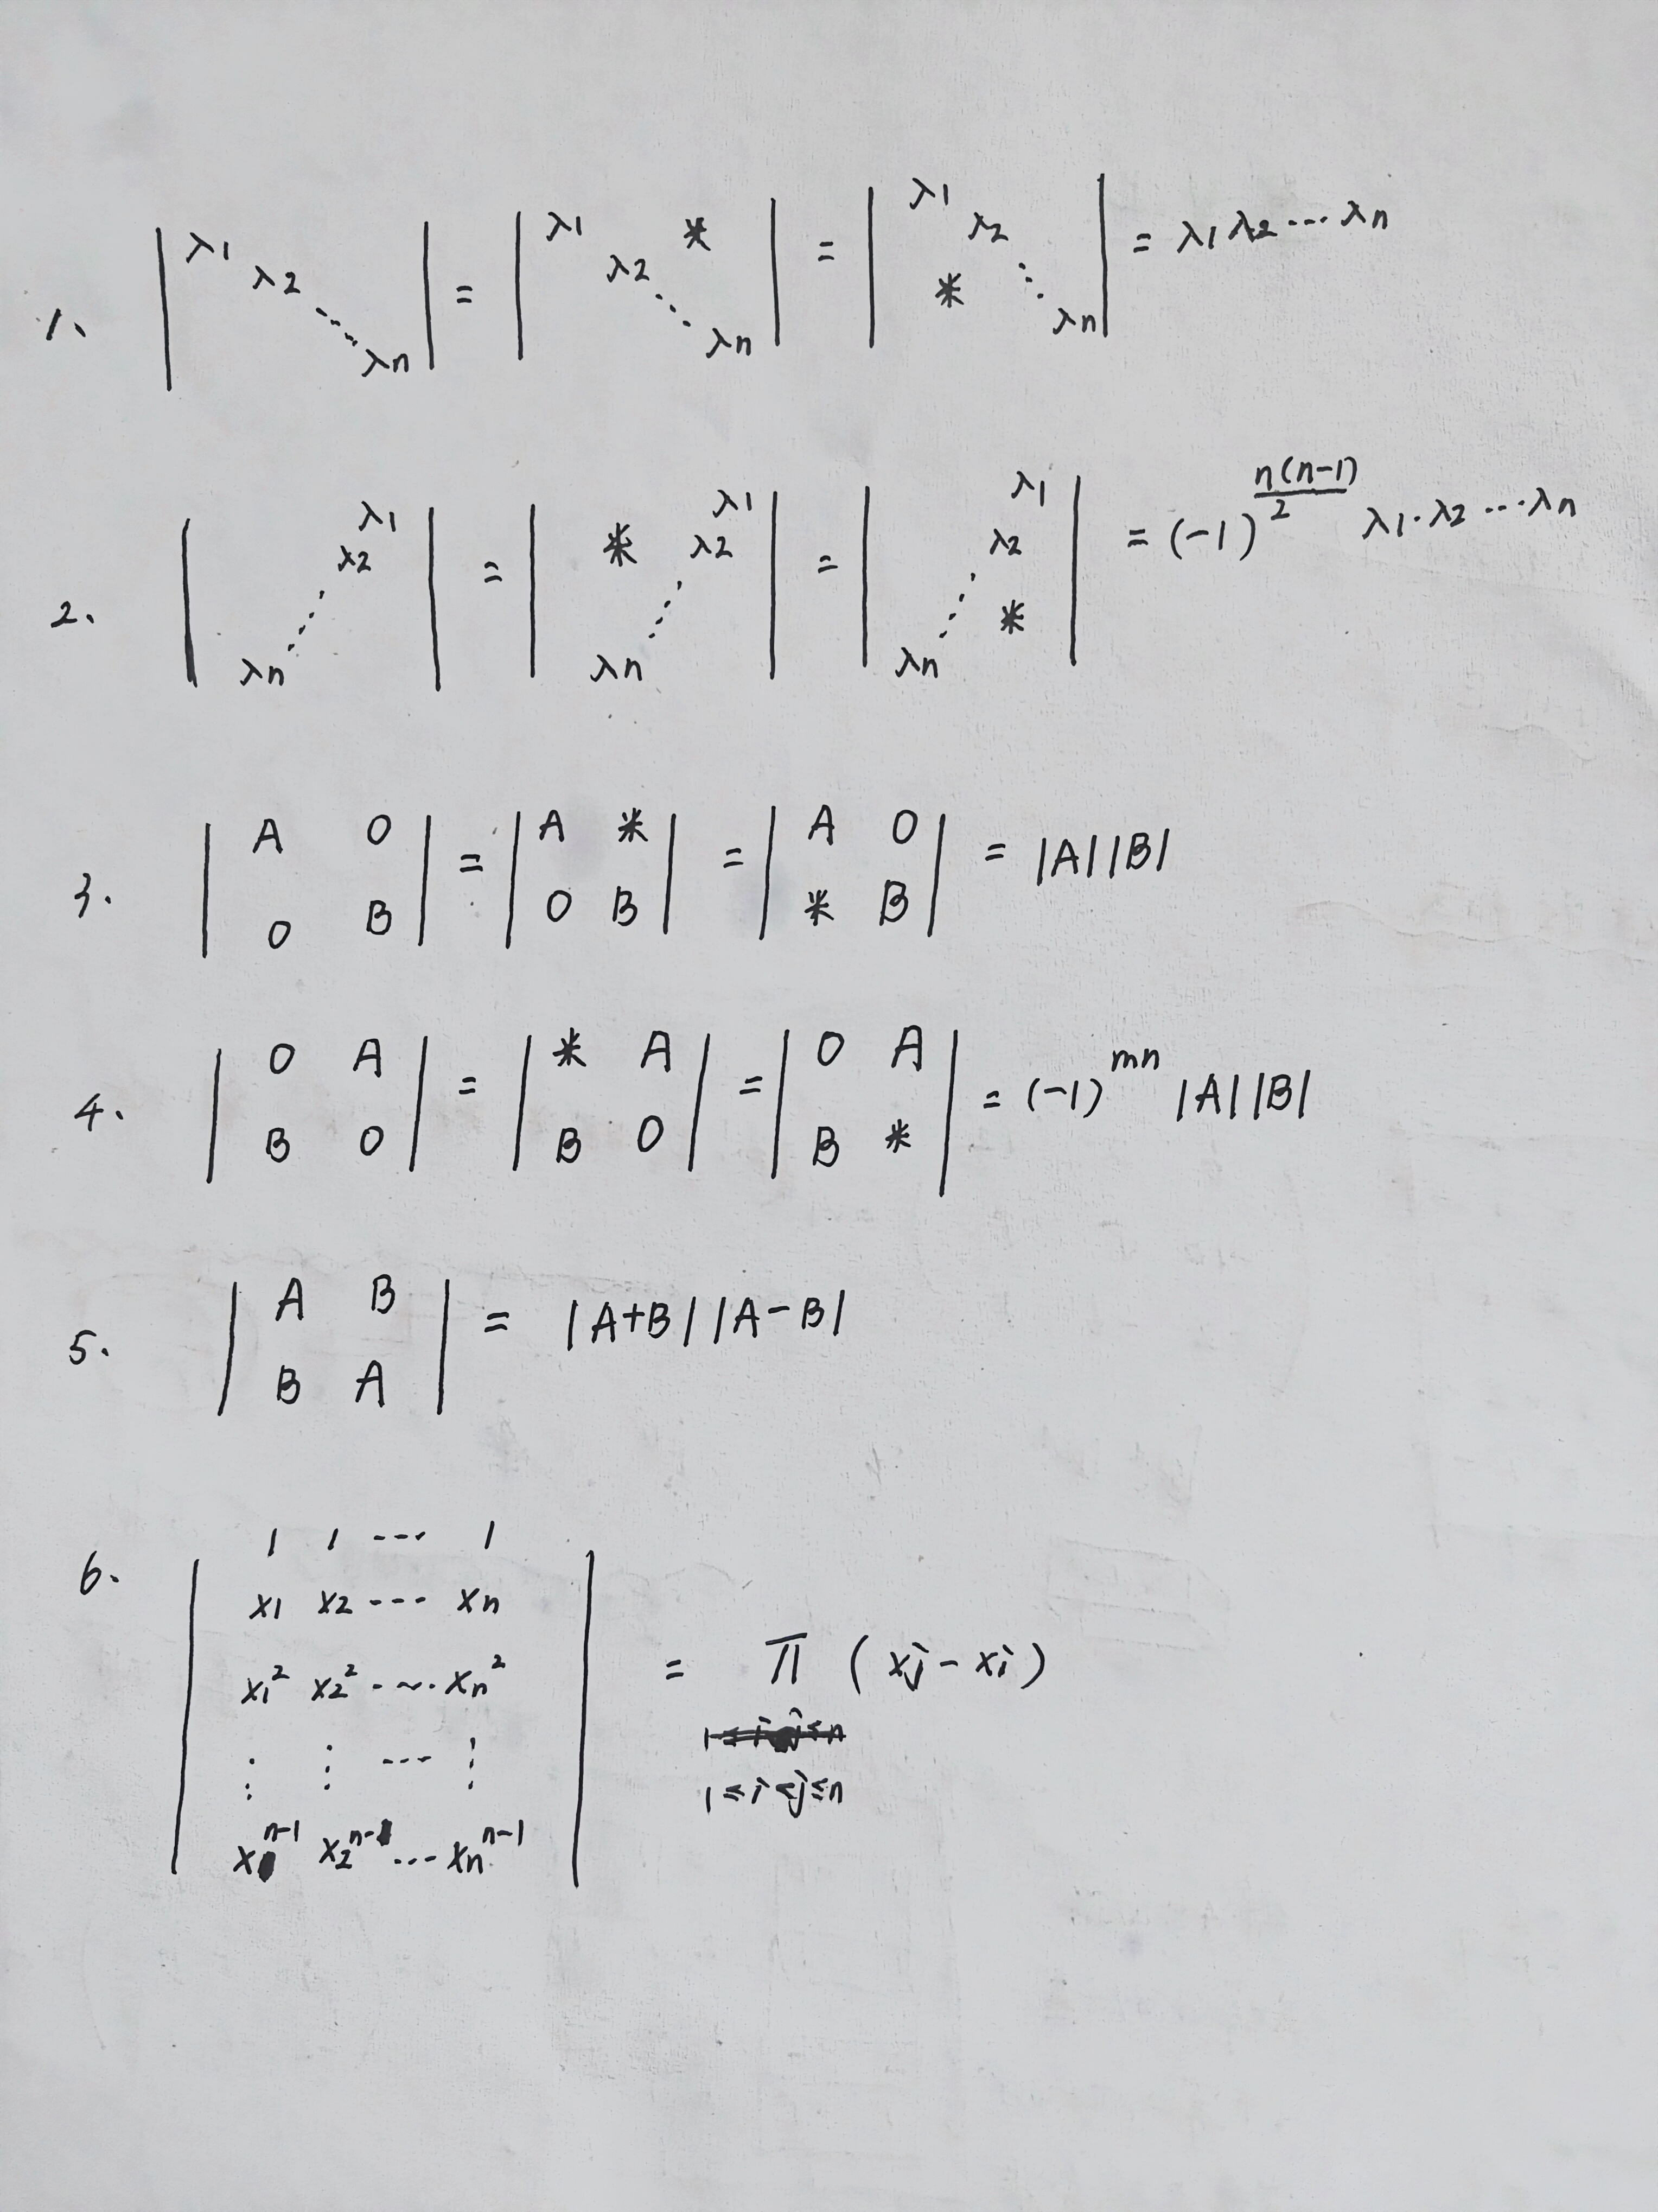 1、 | λ1 λ2 ⋱ λn | = | λ1 λ2 ⋱ λn * | = | λ1 λ2 ⋱ λn * | = λ1 λ2 ⋯ λn
2、 | λ1 λ2 ⋰ λn | = | * λ1 λ2 ⋰ λn | = | λ1 λ2 ⋰ λn * | = (-1)^{n(n-1)/2} λ1·λ2⋯λn
3. | A 0 ; 0 B | = | A * ; 0 B | = | A 0 ; * B | = |A||B|
4. | 0 A ; B 0 | = | * A ; B 0 | = | 0 A ; B * | = (-1)^{mn} |A||B|
5. | A B ; B A | = |A+B||A-B|
6.
1 1 ⋯ 1
x1 x2 ⋯ xn
x1² x2² ⋯ xn² = Π (xj - xi)
⋮ ⋮ ⋯ ⋮
1≤i<j≤n
x^{n-1} x2^{n-1} ⋯ xn^{n-1}